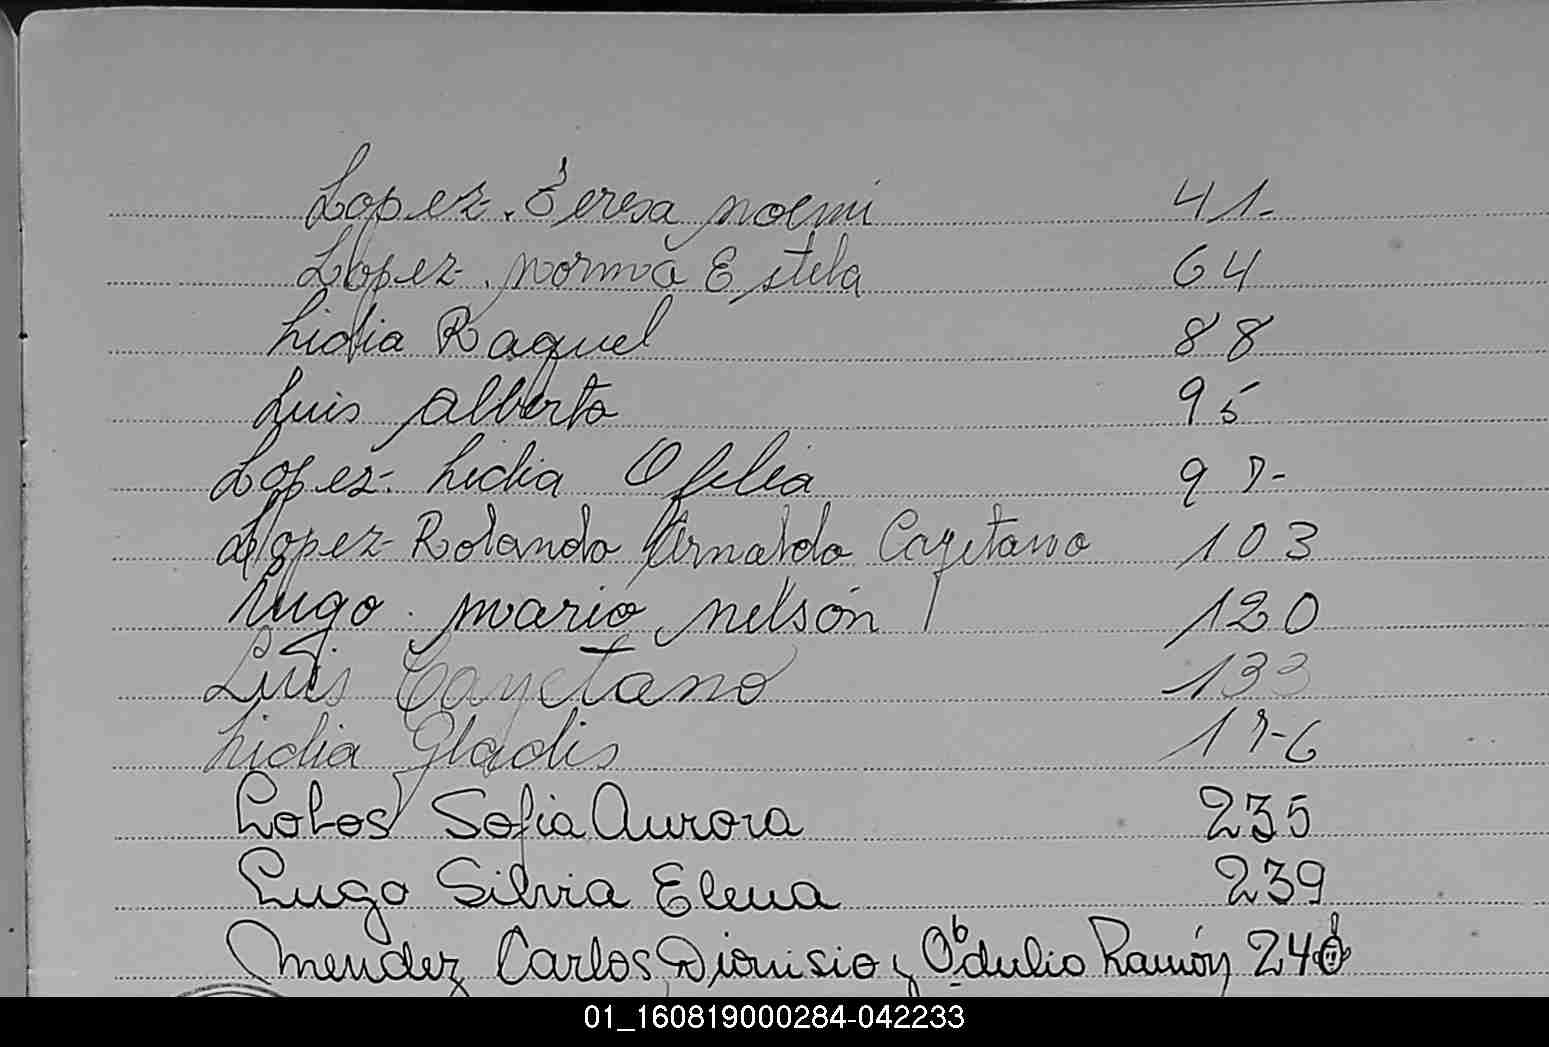 Lopez. Teresa Noemi 41-
Lopez. Norma Estela 64
Lidia Raquel 88
Luis Alberto 95
Lopez. Lidia Ofelia 97-
Lopez Rolando Arnaldo Cayetano 103
Lugo. Mario Nelson 120
Luis Cayetano 133
Lidia Gladis 176
Lobos Sofia Aurora 235
Lugo Silvia Elena 239
Mendez Carlos Dionisio y Odulio Ramón 240
01_160819000284-042233